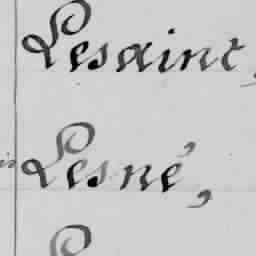 Lesaint,
Lesné,